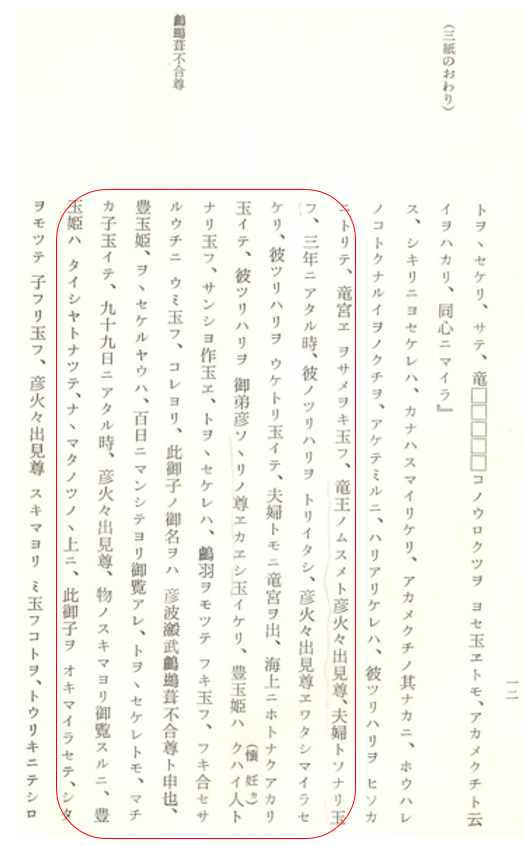 (三紙のおわり)
鸕鷀葺不合尊
トヲヽセケリ、サテ、竜□□□□□コノウロクツヲ ヨセ玉ヱトモ、アカメクチト云
イヲハカリ、同心ニマイラ』
ス、シキリニヨセケレハ、カナハスマイリケリ、アカメクチノ其ナカニ、ホウハレ
ノコトクナルイヲノクチヲ、アケテミルニ、ハリアリケレハ、彼ツリハリヲ ヒソカ
ニトリテ、竜宮ヱ ヲサメヲキ玉フ、竜王ノムスメト彦火々出見尊、夫婦トソナリ玉
フ、三年ニアタル時、彼ノツリハリヲ トリイタシ、彦火々出見尊ヱワタシマイラセ
ケリ、彼ツリハリヲ ウケトリ玉イテ、夫婦トモニ竜宮ヲ出、海上ニホトナクアカリ
玉イテ、彼ツリハリヲ 御弟彦ソヽリノ尊ヱカヱシ玉イケリ、豊玉姫ハ クハイ人ト
(懐妊カ)
ナリ玉フ、サンシヨ作玉ヱ、トヲヽセケレハ、鸕羽ヲモツテ フキ玉フ、フキ合セサ
ルウチニ ウミ玉フ、コレヨリ、此御子ノ御名ヲハ 彦波瀲武鸕鷀葺不合尊ト申也、
豊玉姫、ヲヽセケルヤウハ、百日ニマンシテヨリ御覧アレ、トヲヽセケレトモ、マチ
カ子玉イテ、九十九日ニアタル時、彦火々出見尊、物ノスキマヨリ御覧スルニ、豊
玉姫ハ タイシヤトナツテ、ナヽマタノツノヽ上ニ、此御子ヲ オキマイラセテ、シタ
ヲモツテ 子フリ玉フ、彦火々出見尊 スキマヨリ ミ玉フコトヲ、トウリキニテシロ
一二